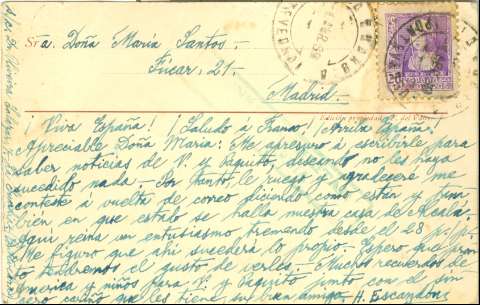 Sra. Doña María Santos-
Fúcar, 21.
Madrid.
¡Viva España! ¡Saludo á Franco! ¡Arriba España!
Apreciable Doña María: Me apresuro á escribirle para
saber noticias de V. y Paquito, deseando no les haya
sucedido nada - Por tanto, le ruego y agradeceré me
conteste á vuelta de correo diciendo como están y tam-
bién en que estado se halla nuestra casa de Alcalá.
Aquí reina un entusiasmo tremendo desde el 28 p./p.
Me figuro que ahí sucederá lo propio. Espero que pron-
to tendremos el gusto de verles. - Muchos recuerdos de
America y niños para V. y Paquito junto con el sin-
cero cariño que les tiene su buen amigo. A. Escandón